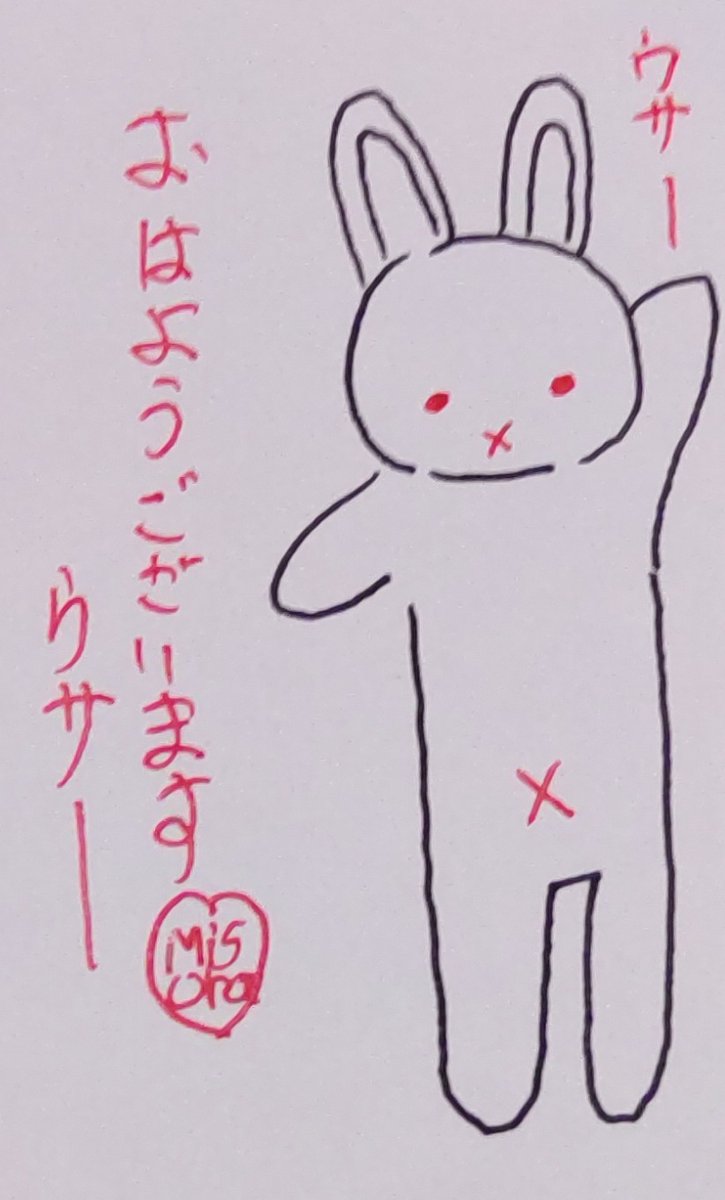 ウサー
おはようございます
ウサー
Mis
ora